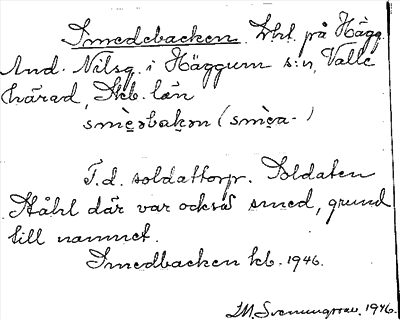 Smedebacken. Lht. på Hägg.
And. Nilsg. i Häggum s:n, Valle
härad, Skb. län
smèəbakən (smèa-)
F.d. soldattorp. Soldaten
Ståhl där var också smed, grund
till namnet.
Smedbacken kb. 1946.
M. Svenungsson. 1946.